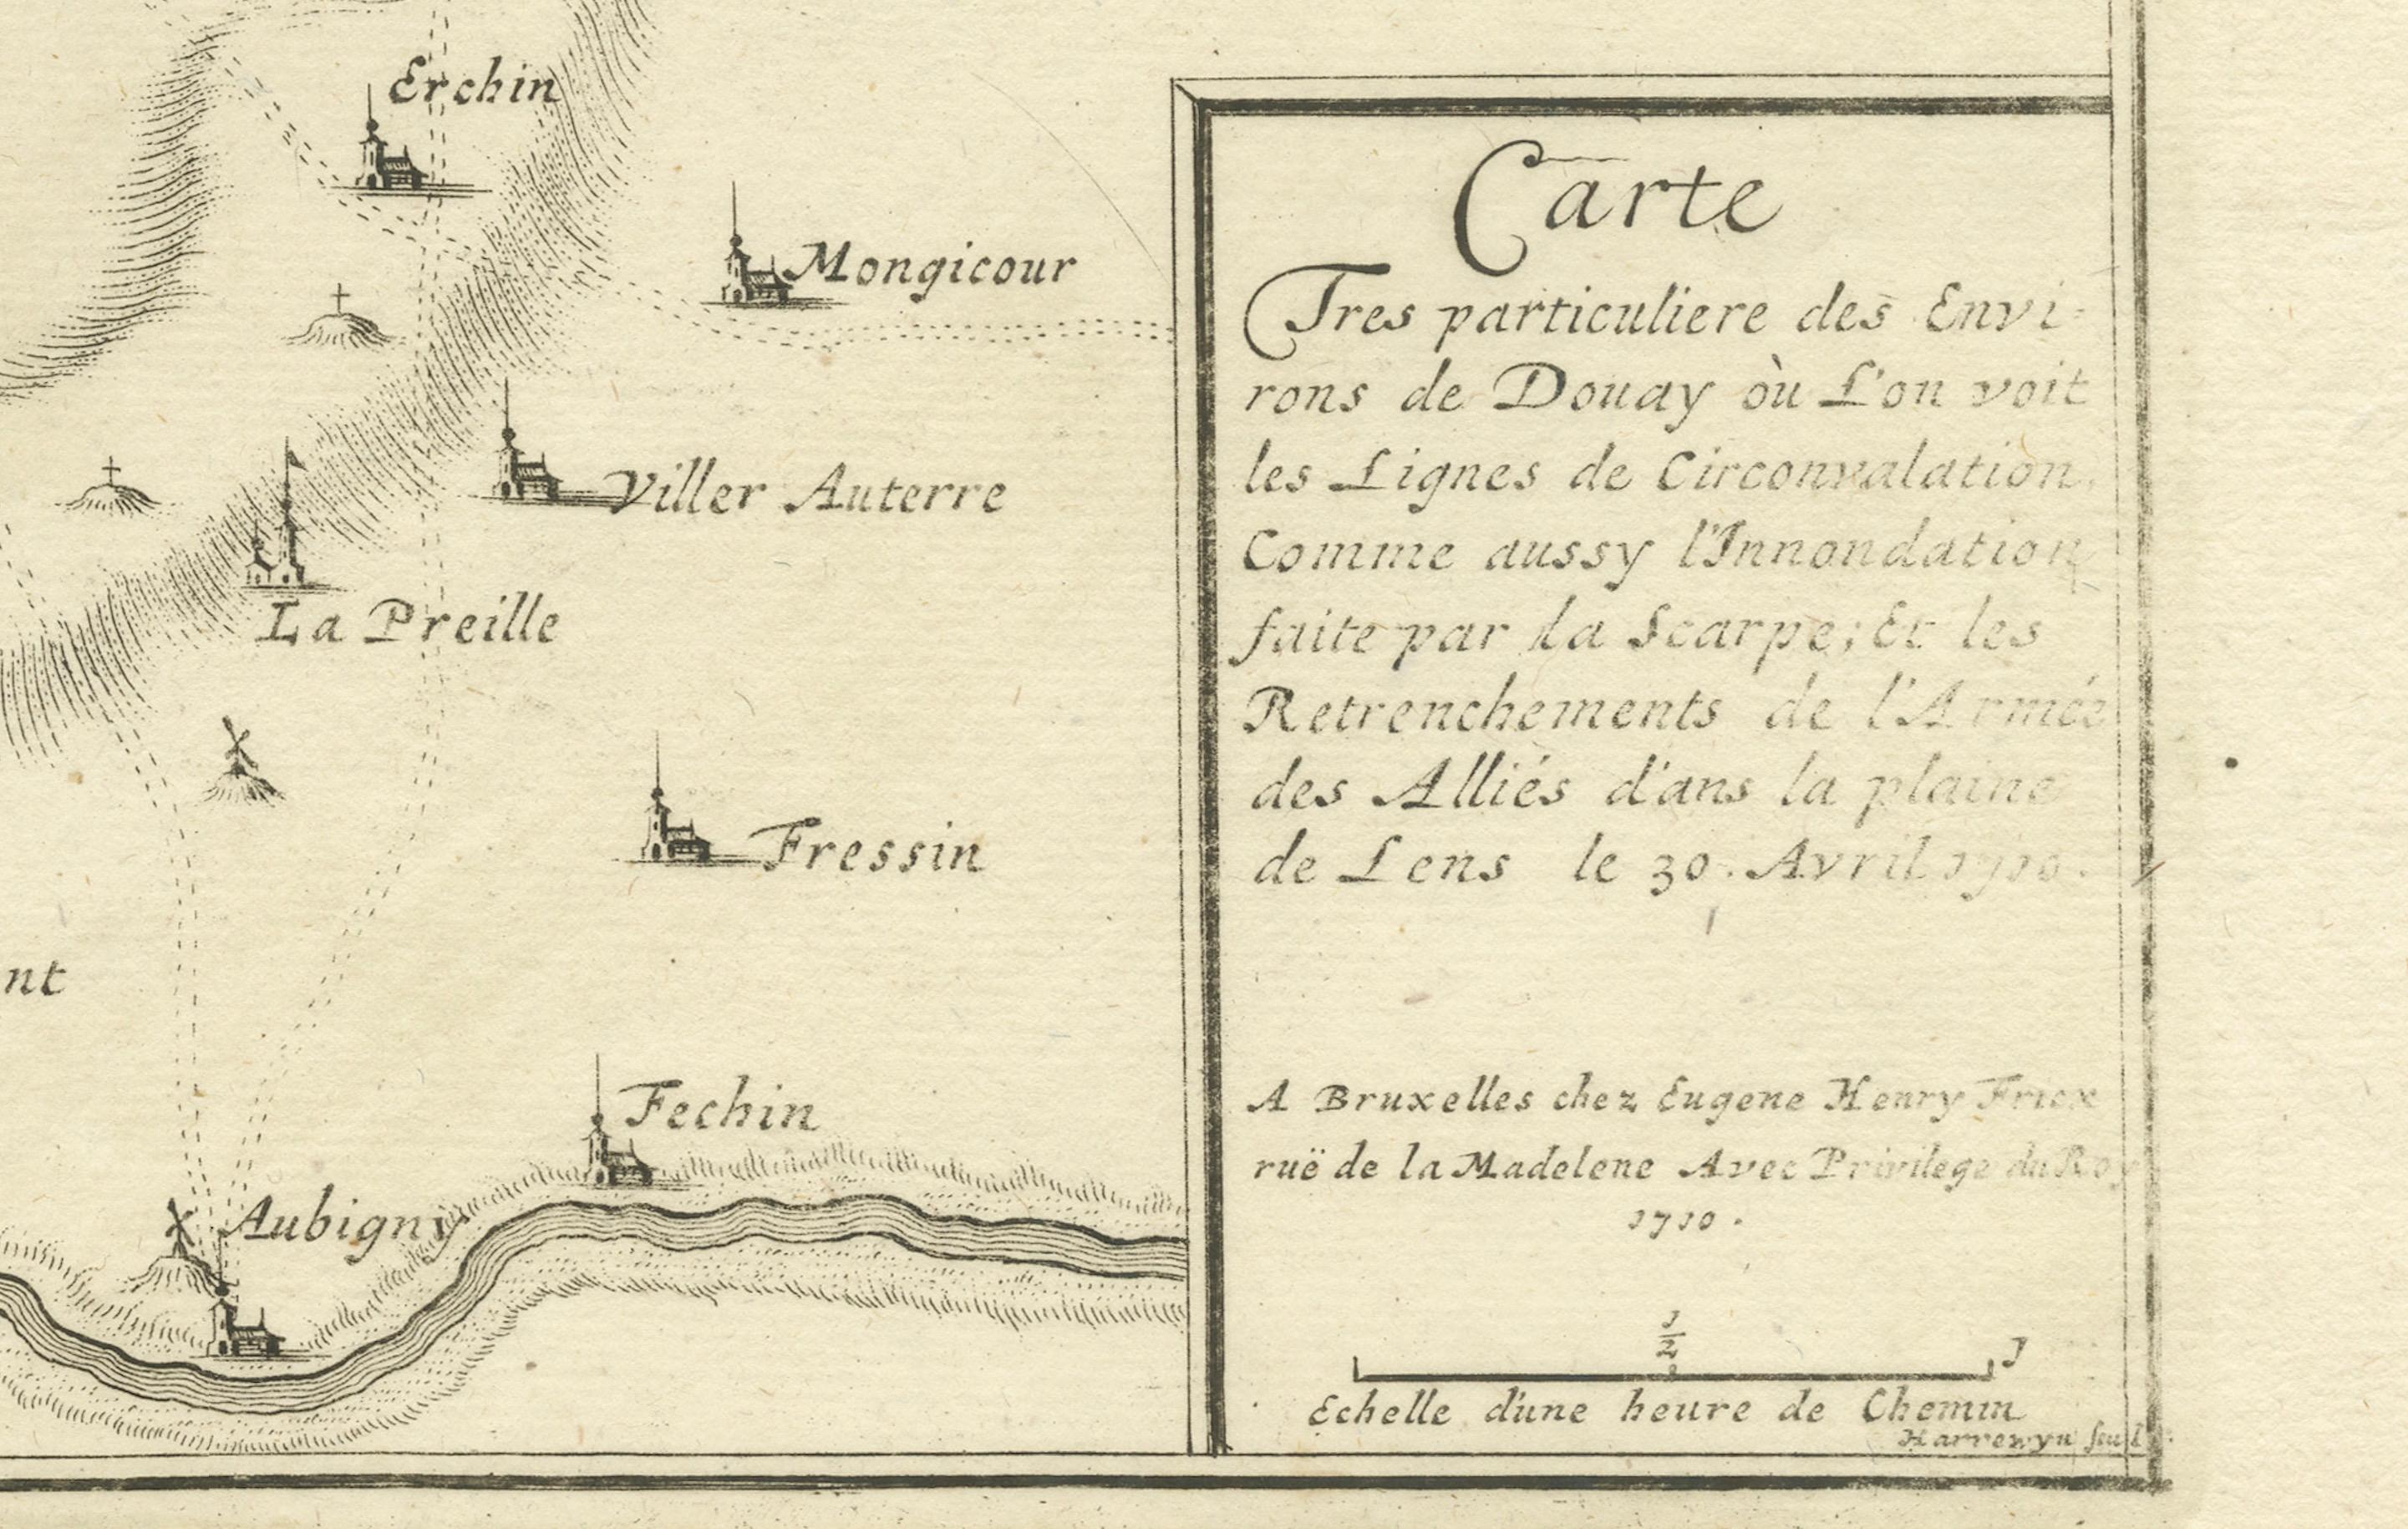 Erchin
Mongicour
Viller Auterre
La Preille
Fressin
nt
Fechin
Aubigny
Carte
Tres particuliere des Envi-
rons de Douay où L'on voit
les Lignes de Circonvalation,
Comme aussy l'Innondation
faite par la Scarpe; Et les
Retrenchements de l'Armée
des Alliés d'ans la plaine
de Lens le 30. Avril 1710.
A Bruxelles chez Eugene Henry Fricx
ruë de la Madelene Avec Privilege du Roy
1710.
1/2 1
Echelle d'une heure de Chemin
Harrewyn sculp